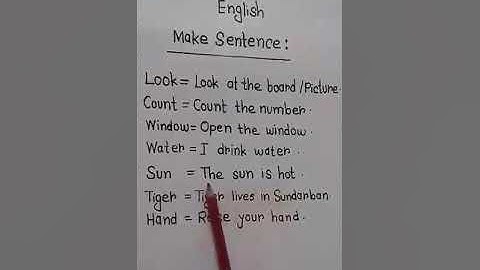 English
Make Sentence:
Look = Look at the board/Picture.
Count = Count the number.
Window = Open the window.
Water = I drink water.
Sun = The sun is hot.
Tiger = Tiger lives in Sundarban
Hand = Raise your hand.